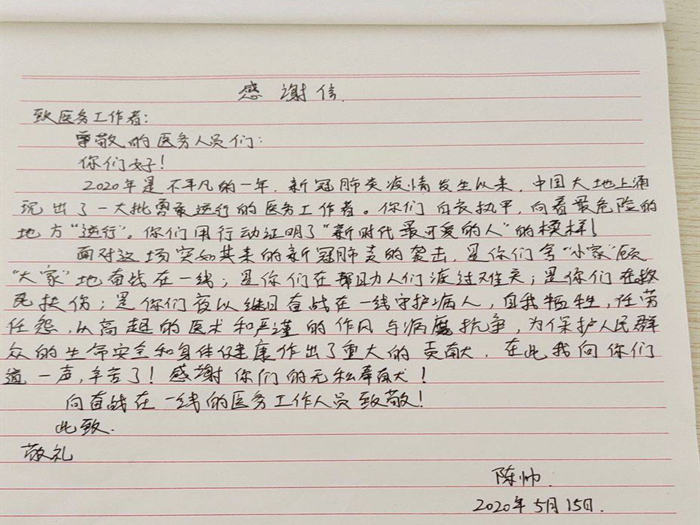 感谢信.
致医务工作者:
尊敬的医务人员们:
你们好!
2020年是不平凡的一年,新冠肺炎疫情发生以来,中国大地上涌
现出了一大批勇敢逆行的医务工作者。你们白衣执甲,向着最危险的
地方“逆行”。你们用行动证明了“新时代最可爱的人”的模样!
面对这场突如其来的新冠肺炎的袭击,是你们舍“小家”顾
“大家”地奋战在一线;是你们在帮助人们渡过难关;是你们在救
死扶伤;是你们夜以继日奋战在一线守护病人,自我牺牲,任劳
任怨,从高超的医术和严谨的作风与病魔抗争,为保护人民群
众的生命安全和身体健康作出了重大的贡献,在此我向你们
道一声,辛苦了!感谢你们的无私奉献!
向奋战在一线的医务工作人员致敬!
此致.
敬礼
陈帅.
2020年5月15日.